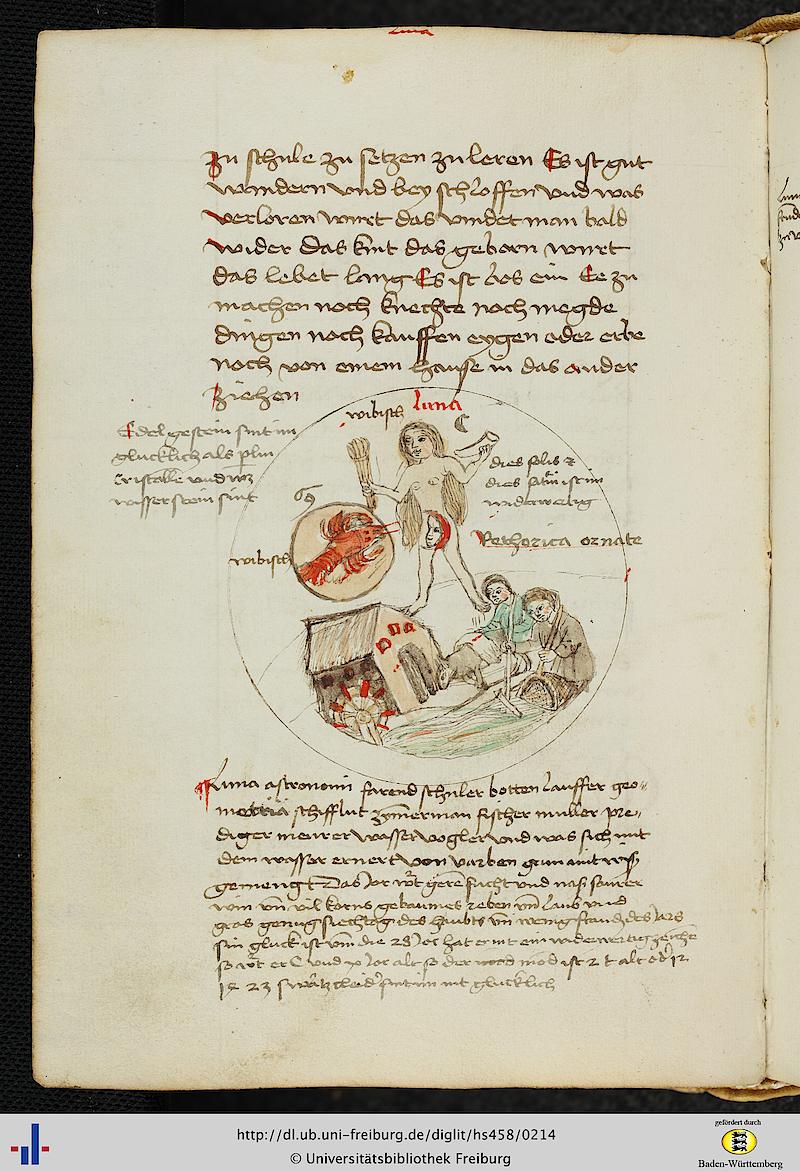 luna
Zu schule zu setzen zu leren Es ist gut
wandern vnd bey schloffen vnd was
verloren wirt das vindet man bald
wider das kint das geborn wirt
das lebet lang Es ist bos ein Ee zu
machen noch knechte noch megde
dingen noch kauffen eygen oder erbe
noch von einem hause in das ander
ziehen
wibisch luna
Edel gestein sint im
glucklich als
Cristalle vnd
wasser stein sint
dies solis
dies ist im
widerwertig
Rethorica ornate
wibisch
Luna astronomi farend schuler botten lauffer geo-
metria schifflut zymerman fischer muller pre-
diger meurer wasser vogler vnd was sich mit
dem wasser ernert von varben grun mit wiß
gemengt Das Jor wirt gere fucht vnd naß saurer
win vnd vil korns gebaumes reben vnd laub vnd
gras genug siechtag des haubts vnd wenig
sin gluck ist vm die 28 Jor hat er nit ein widerwertig zeiche
so wirt er C vnd x Jor alt so der mod ist 2 t alt od 12
15 23 swartz cleid sint im nit glucklich
http://dl.ub.uni-freiburg.de/diglit/hs458/0214
© Universitätsbibliothek Freiburg
gefördert durch
Baden-Württemberg